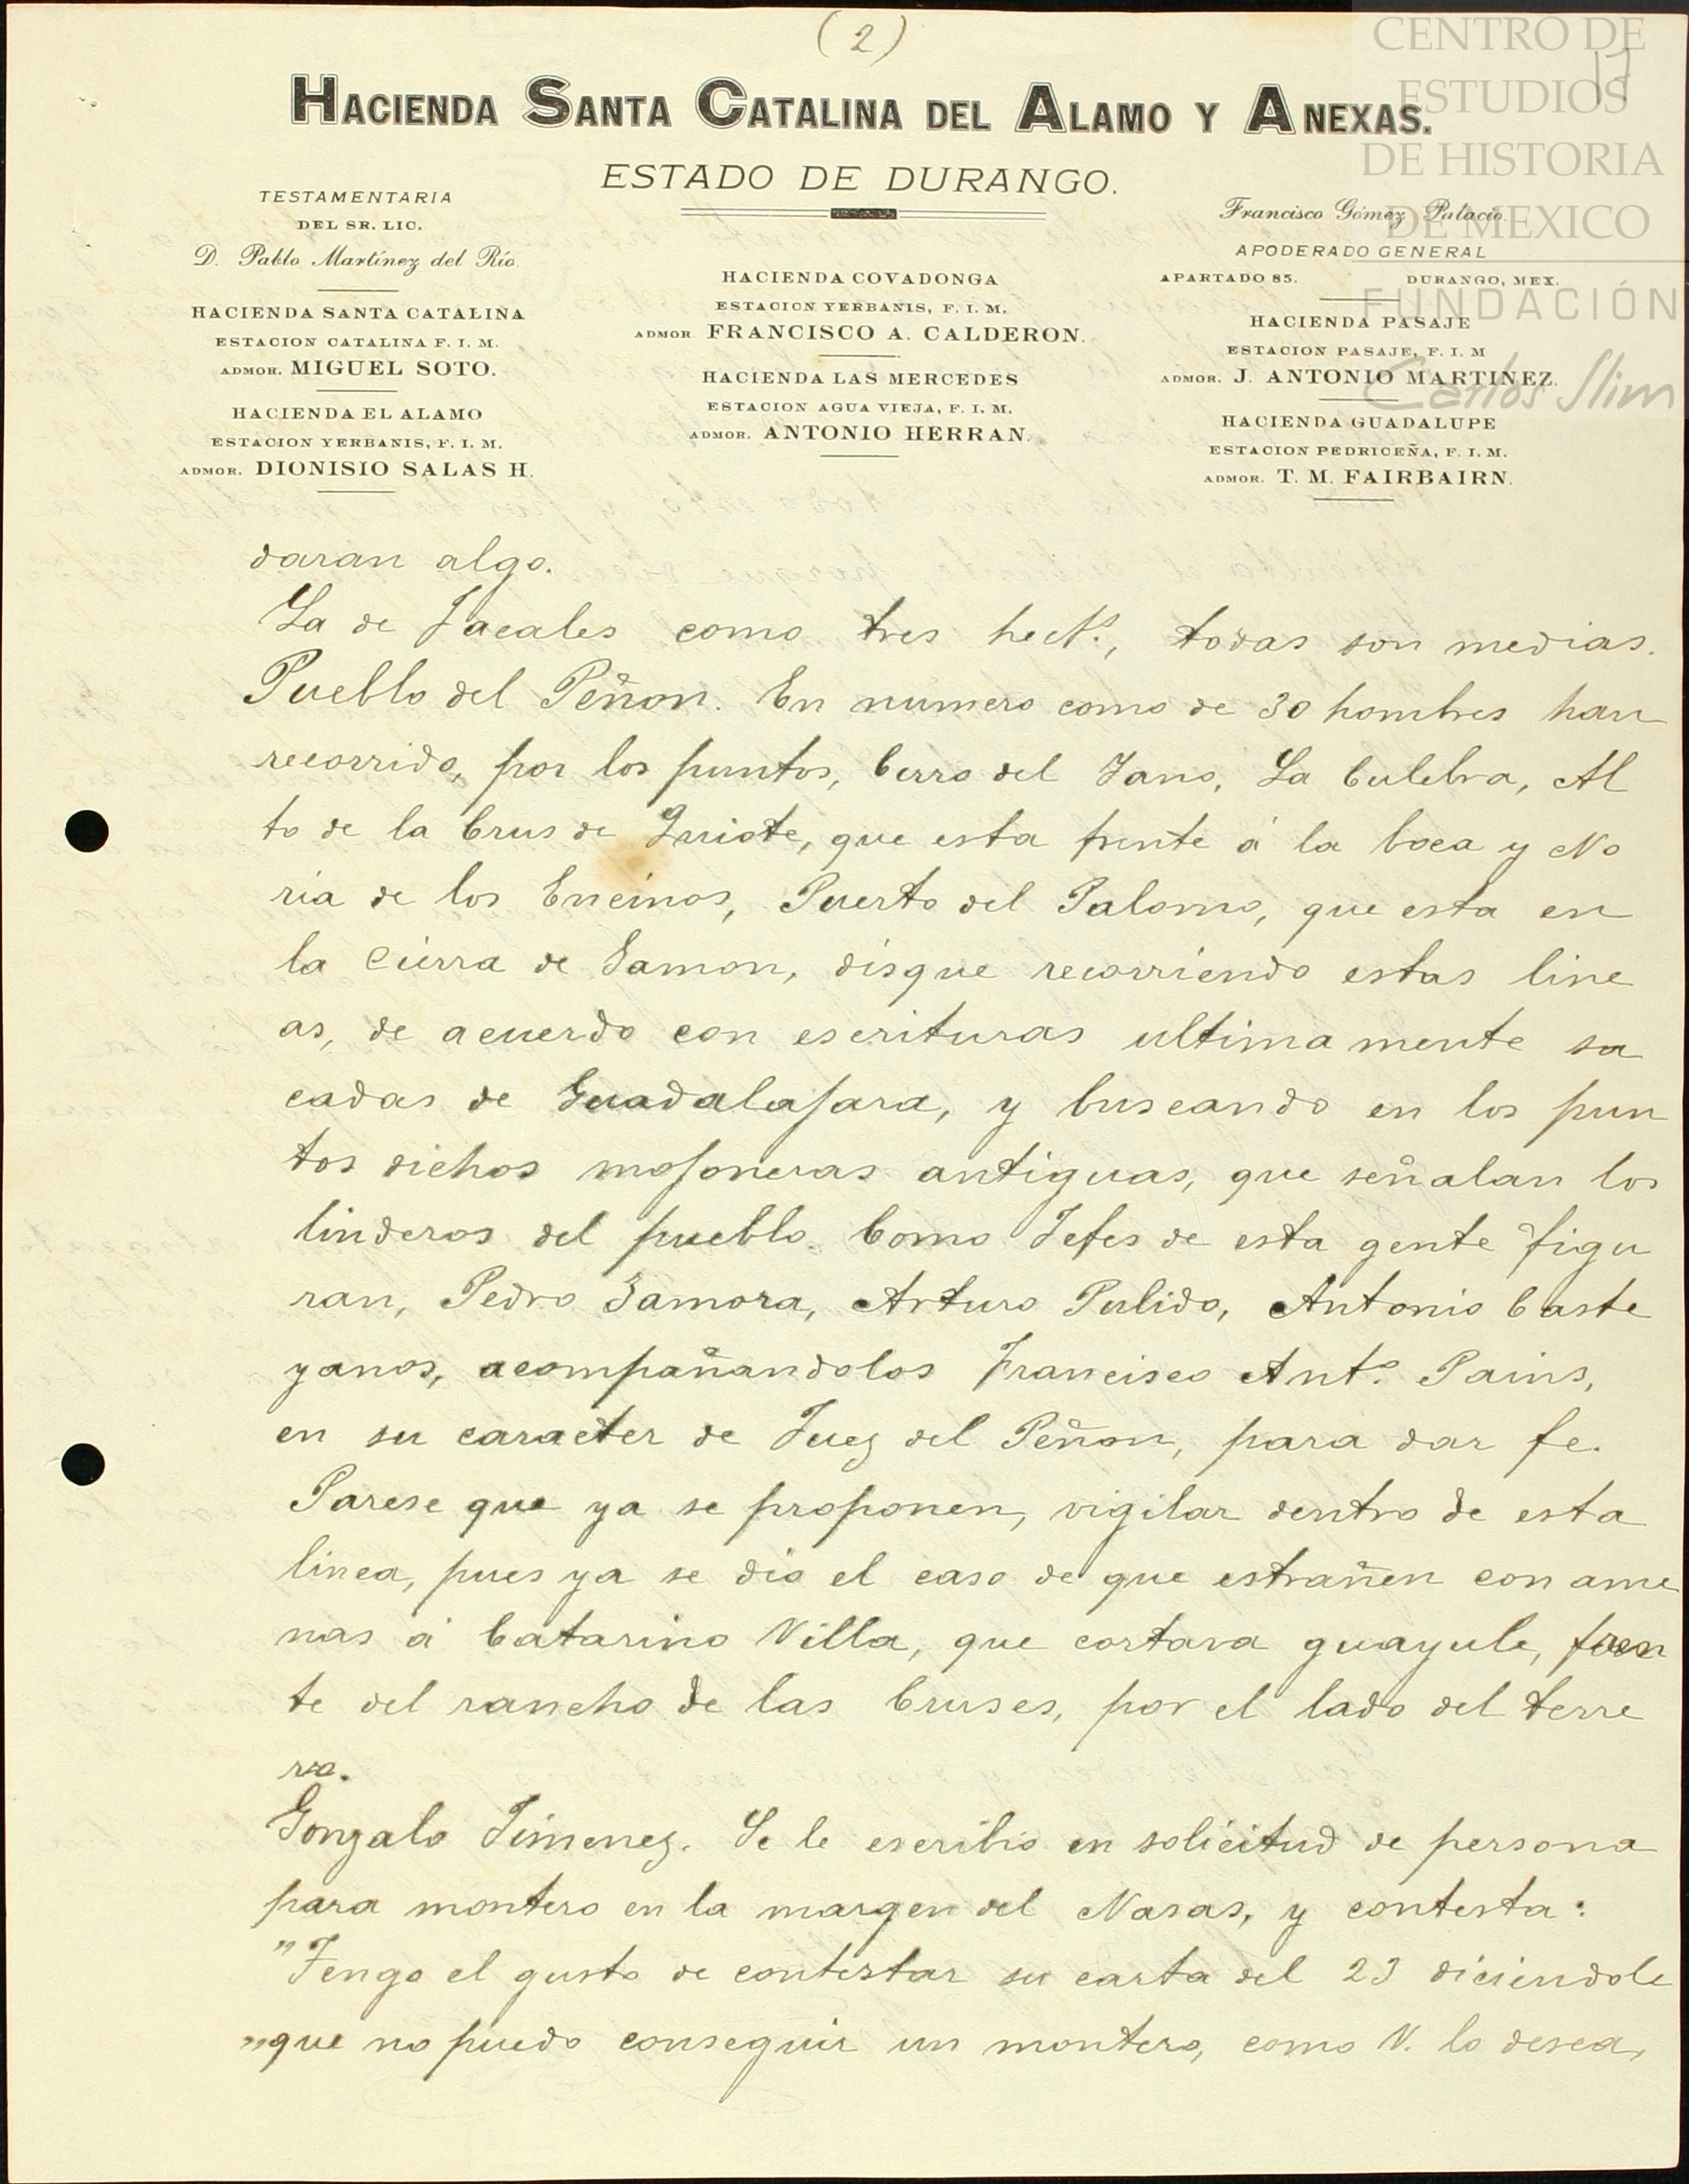 (2)
17
CENTRO DE
ESTUDIOS
DE HISTORIA
DE MEXICO
FUNDACIÓN
Carlos Slim
HACIENDA SANTA CATALINA DEL ALAMO Y ANEXAS.
ESTADO DE DURANGO.
TESTAMENTARIA
DEL SR. LIC.
D. Pablo Martínez del Río.
HACIENDA SANTA CATALINA
ESTACION CATALINA F. I. M.
ADMOR. MIGUEL SOTO.
HACIENDA EL ALAMO
ESTACION YERBANIS, F. I. M.
ADMOR. DIONISIO SALAS H.
HACIENDA COVADONGA
ESTACION YERBANIS, F. I. M.
ADMOR. FRANCISCO A. CALDERON.
HACIENDA LAS MERCEDES
ESTACION AGUA VIEJA, F. I. M.
ADMOR. ANTONIO HERRAN.
Francisco Gómez Palacio.
APODERADO GENERAL
APARTADO 85. DURANGO, MEX.
HACIENDA PASAJE
ESTACION PASAJE, F. I. M
ADMOR. J. ANTONIO MARTINEZ.
HACIENDA GUADALUPE
ESTACION PEDRICEÑA, F. I. M.
ADMOR. T. M. FAIRBAIRN.
daran algo.
La de Jacales como tres hect.s, todas son medias.
Pueblo del Peñon. En numero como de 30 hombres han
recorrido, por los puntos, Cerro del Jano, La Culebra, Al
to de la Crus de Quiote, que esta frente á la boca y No
ria de los Encinos, Puerto del Palomo, que esta en
la Cierra de Samon, disque recorriendo estas line
as, de acuerdo con escrituras ultimamente sa
cadas de Guadalajara, y buscando en los pun
tos dichos mojoneras antiguas, que señalan los
linderos del pueblo. Como Jefes de esta gente figu
ran, Pedro Samora, Arturo Pulido, Antonio Caste
yanos, acompañandolos Francisco Ant.o Pains,
en su caracter de Juez del Peñon, para dar fe.
Parese que ya se proponen, vigilar dentro de esta
linea, pues ya se dio el caso de que estrañen con ame
nas á Catarino Villa, que cortava guayule, fren
te del rancho de las Cruses, por el lado del terre
ro.
Gonzalo Jimenez. Se le escribio en solicitud de persona
para montero en la margen del Nasas, y contesta:
"Tengo el gusto de contestar su carta del 23 diciendole
"que no puedo conseguir un montero, como V. lo desea,